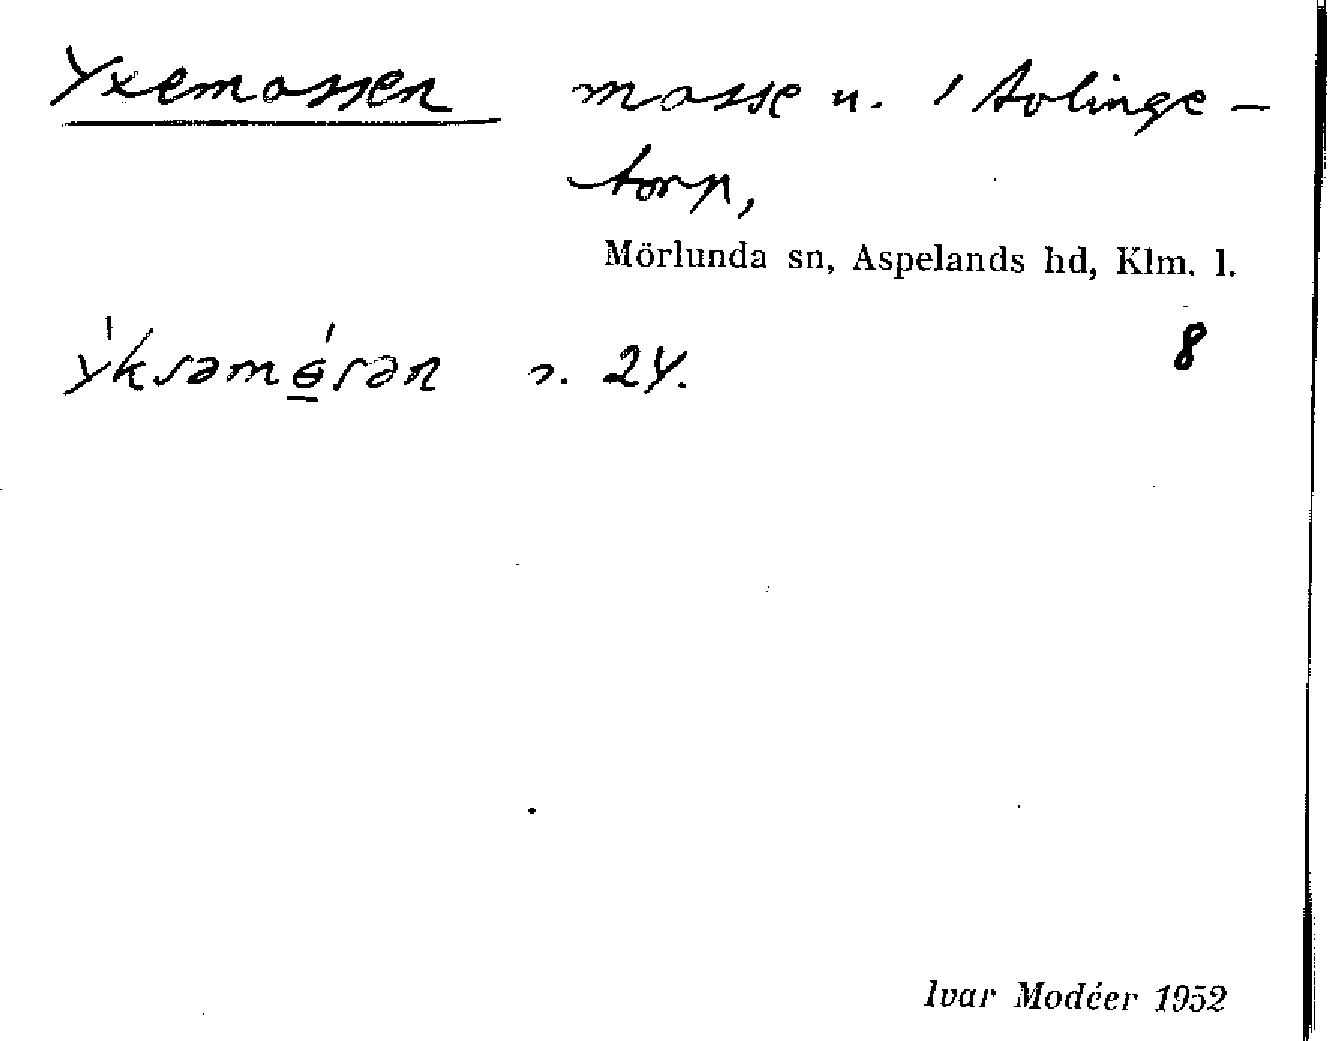 Yxemossen mosse u. 1 Avlinge-
torp,
Mörlunda sn, Aspelands hd, Klm. l.
8
ýksəmɵ́sən s. 24.
Ivar Modéer 1952